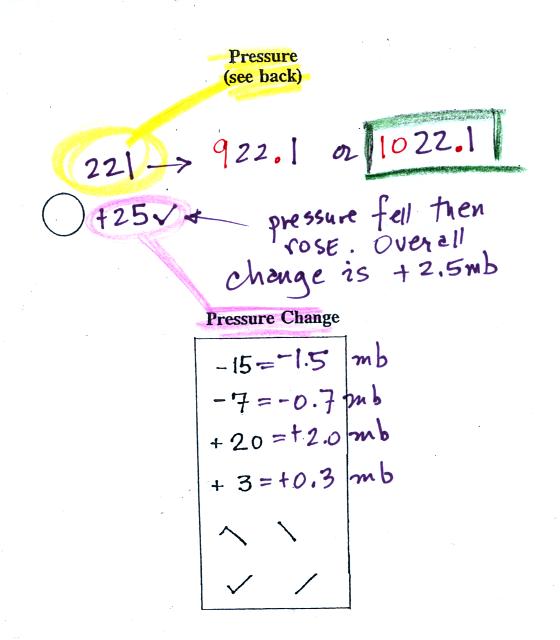 Pressure
(see back)
221 → 922.1 or 1022.1
+25✓ ← pressure fell then
rose. Overall
change is +2.5mb
Pressure Change
-15=-1.5 mb
-7=-0.7 mb
+20=+2.0 mb
+3=+0.3 mb